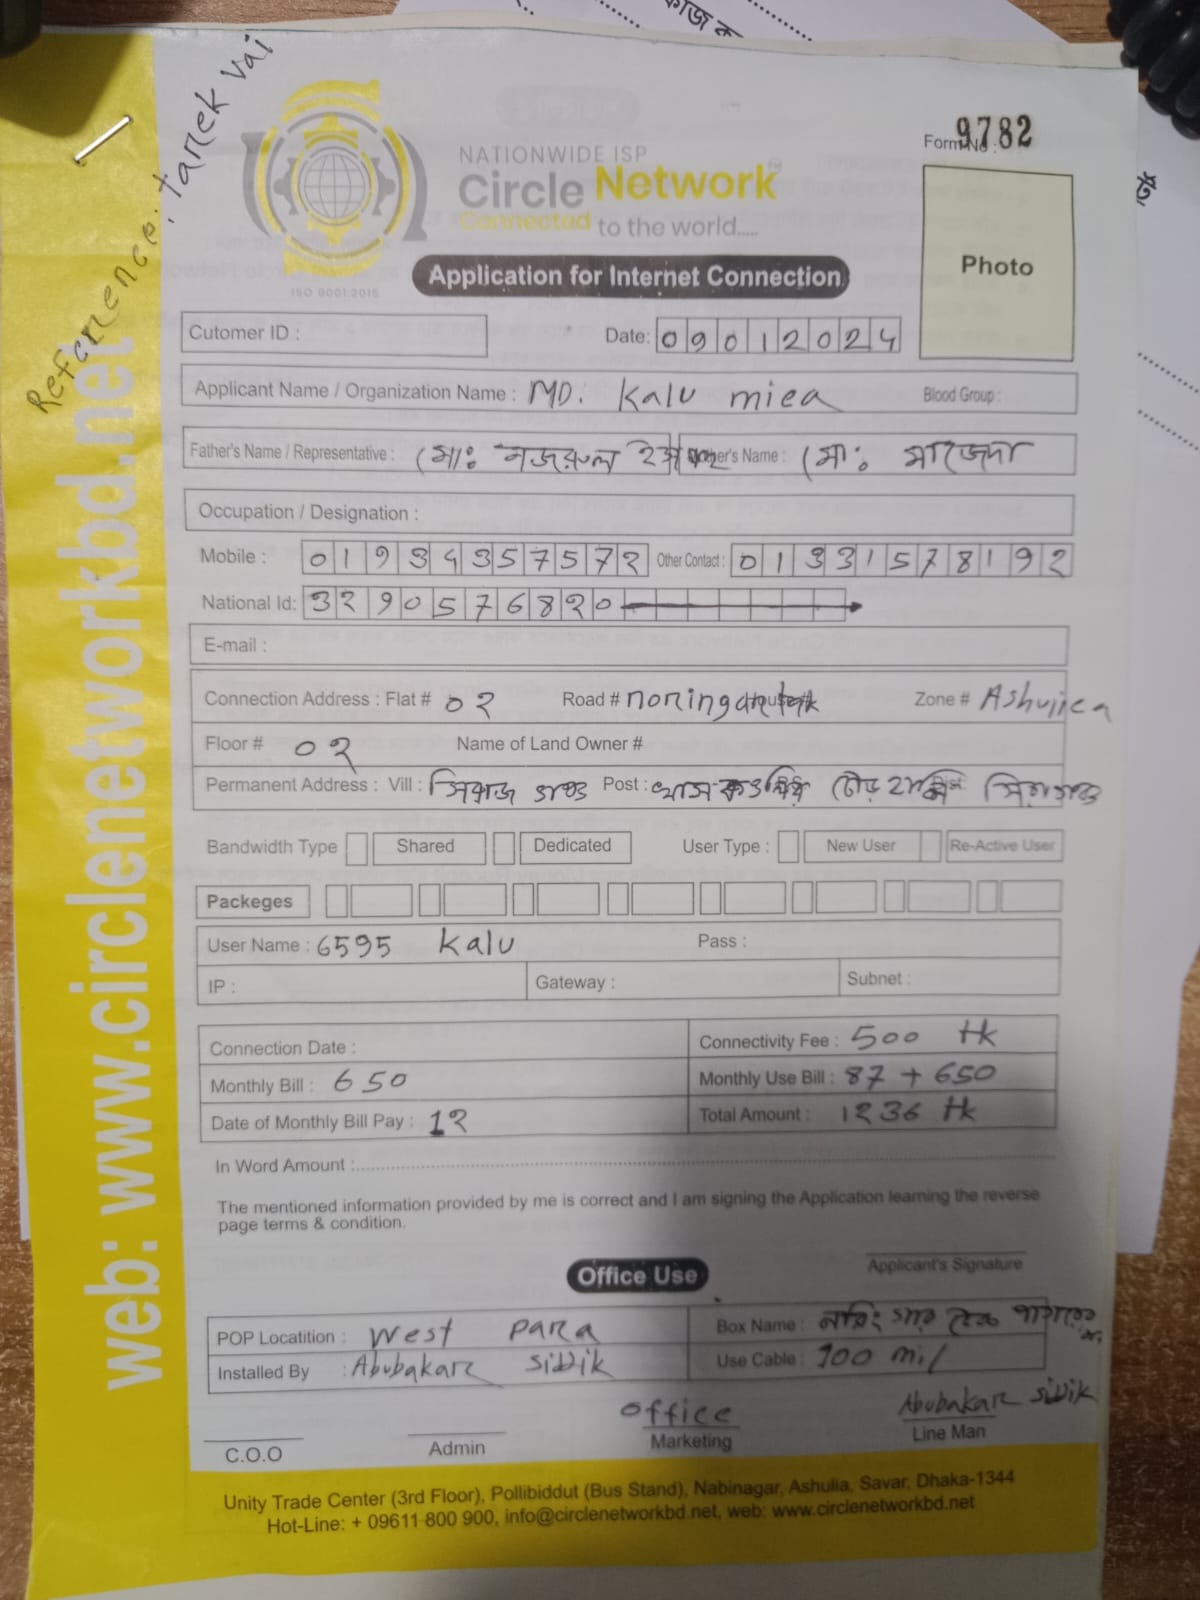 কাজ ক
Reference: tarek vai
Form No : 9782
NATIONWIDE ISP
Circle Network
Connected to the world.....
ISO 9001:2015
Application for Internet Connection
Photo
Cutomer ID :
Date: 09012024
Applicant Name / Organization Name : MD. Kalu miea Blood Group :
Father's Name / Representative : মোঃ নজরুল Mother's Name : মোঃ মাজেদা
Occupation / Designation :
Mobile : 01934357572 Other Contact : 01331578192
National Id: 3290576820
E-mail :
Connection Address : Flat # 02 Road # noringartek Zone # Ashuliea
Floor # 02 Name of Land Owner #
Permanent Address : Vill : সিরাজ গঞ্জ Post :
Bandwidth Type Shared Dedicated User Type : New User Re-Active User
Packeges
User Name : 6595 Kalu Pass :
IP : Gateway : Subnet :
Connection Date : Connectivity Fee : 500 tk
Monthly Bill : 650 Monthly Use Bill : 87 + 650
Date of Monthly Bill Pay : 12 Total Amount : 1236 tk
In Word Amount :
The mentioned information provided by me is correct and I am signing the Application learning the reverse
page terms & condition.
Applicant's Signature
Office Use
POP Locatition : West para Box Name :
Installed By : Abubakar sidik Use Cable : 100 mil
Office Abubakar sidik
C.O.O Admin Marketing Line Man
Unity Trade Center (3rd Floor), Pollibiddut (Bus Stand), Nabinagar, Ashulia, Savar, Dhaka-1344
Hot-Line: + 09611 800 900, info@circlenetworkbd.net, web: www.circlenetworkbd.net
web: www.circlenetworkbd.net